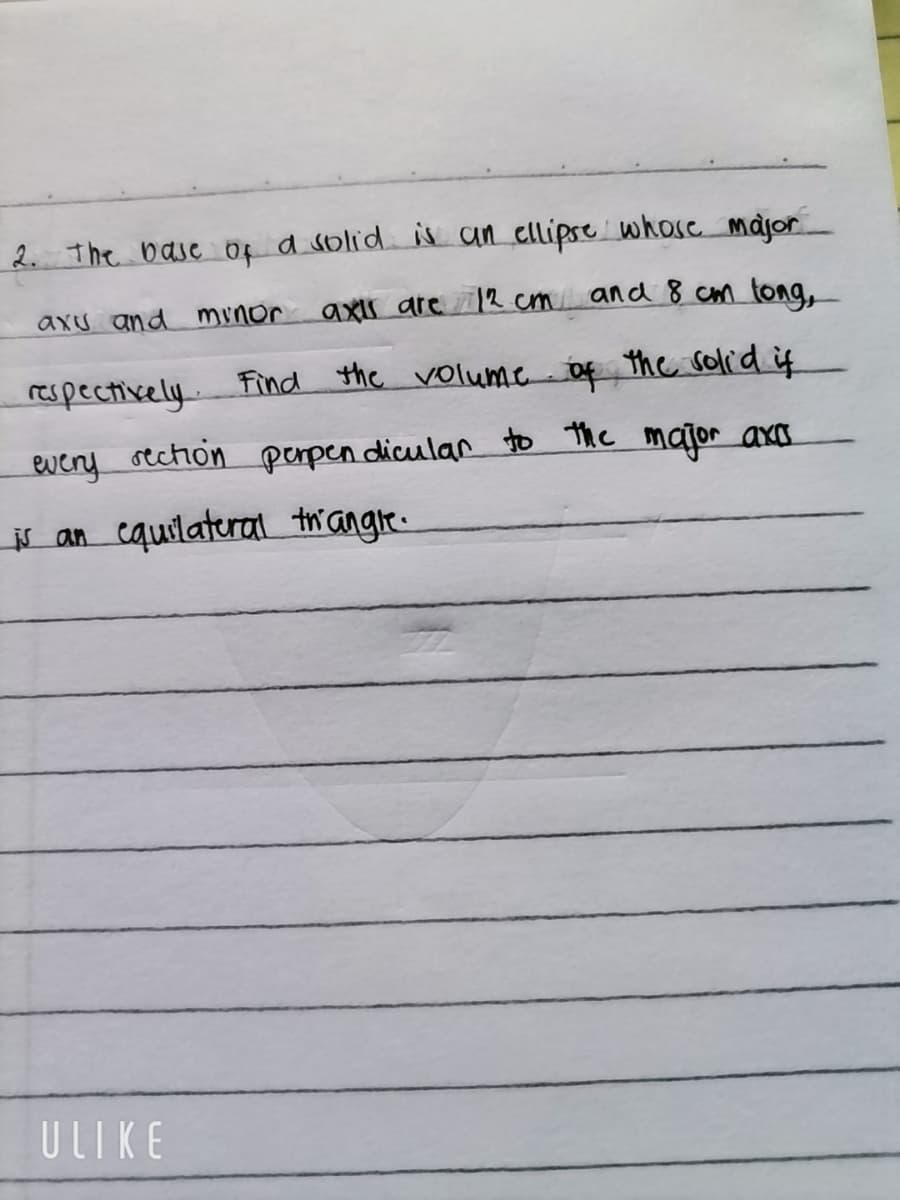 2. The base of a solid is an ellipse whose major
axis and minor axis are 12 cm and 8 cm long,
respectively. Find the volume of the solid if
every section perpendicular to the major axis
is an equilateral triangle.
ULIKE